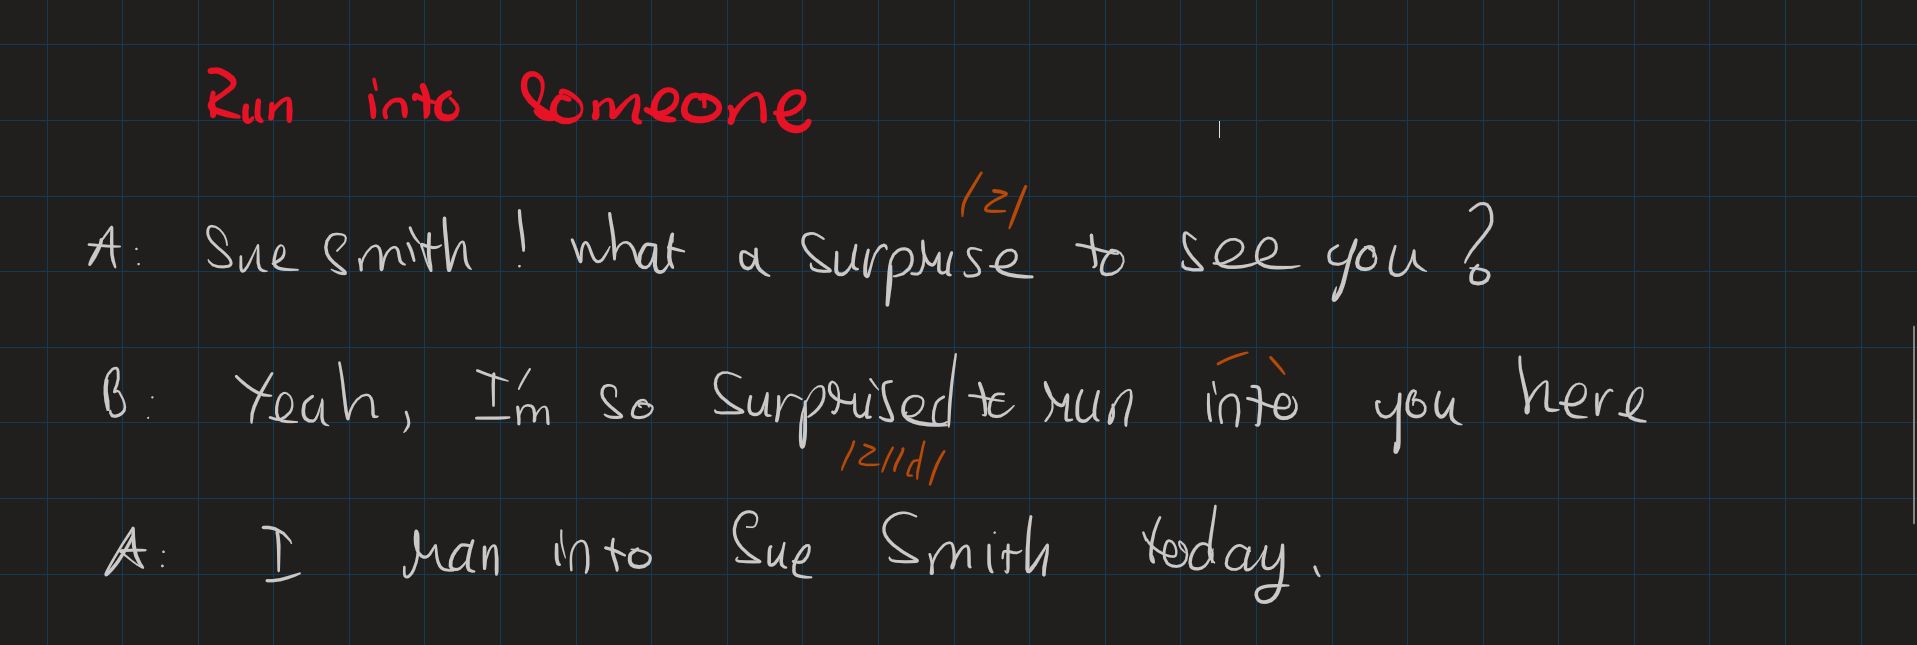 Run into Someone
/z/
A: Sue Smith! what a surprise to see you?
B: Yeah, I'm so surprised to run into you here
/z//d/
A: I ran into Sue Smith today.